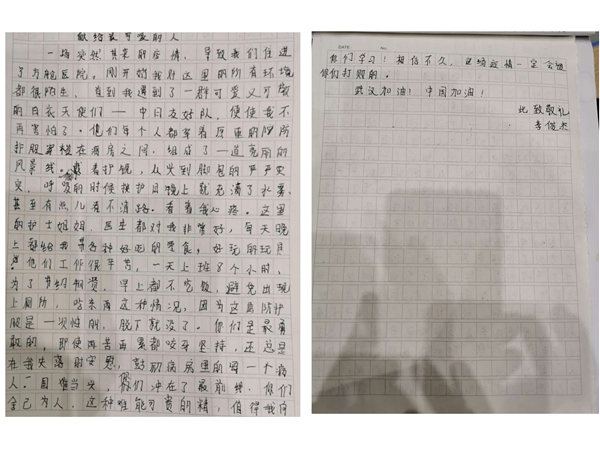 献给最可爱的人
一场突然其来的疫情，导致我们住进
了方舱医院。刚开始我对这里的所有环境
都很陌生，直到我遇到了一群可爱又可敬
的白衣天使们——中日友好队，便使我不
再害怕了。他们每个人都穿着厚重的防
护服穿梭在病房之间，组成了一道亮丽的
风景线，戴着护镜，从头到脚包的严严实
实，呼吸的时候换护目镜上就充满了水雾，
甚至有点儿看不清路。看着我心疼。这里
的护士姐姐、医生都对我非常好，每天晚
上都给我带各种好吃的零食，好玩的玩具
！他们工作很辛苦，一天上班8个小时，
为了节约物资，早上都不吃饭，避免出现
上厕所，吃东西这种情况，因为这是防护
服是一次性的，脱下就没了。你们是最勇
敢的，即使再苦再累都咬牙坚持，还总是
在我失落时安慰，鼓励病房里的每一个病
人。困难当头，你们冲在了最前线，你们
舍己为人，这种难能可贵的精，值得我向
DATE No.
你们学习！相信不久，这场疫情一定会被
你们打败的。
武汉加油！中国加油！
此致敬礼
李俊杰